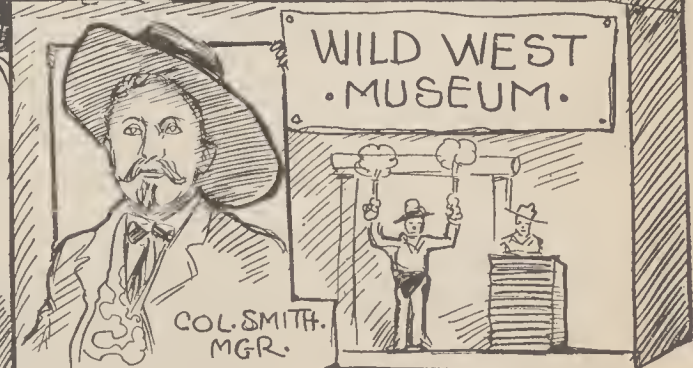 WILD WEST
·MUSEUM·
COL. SMITH.
MGR.